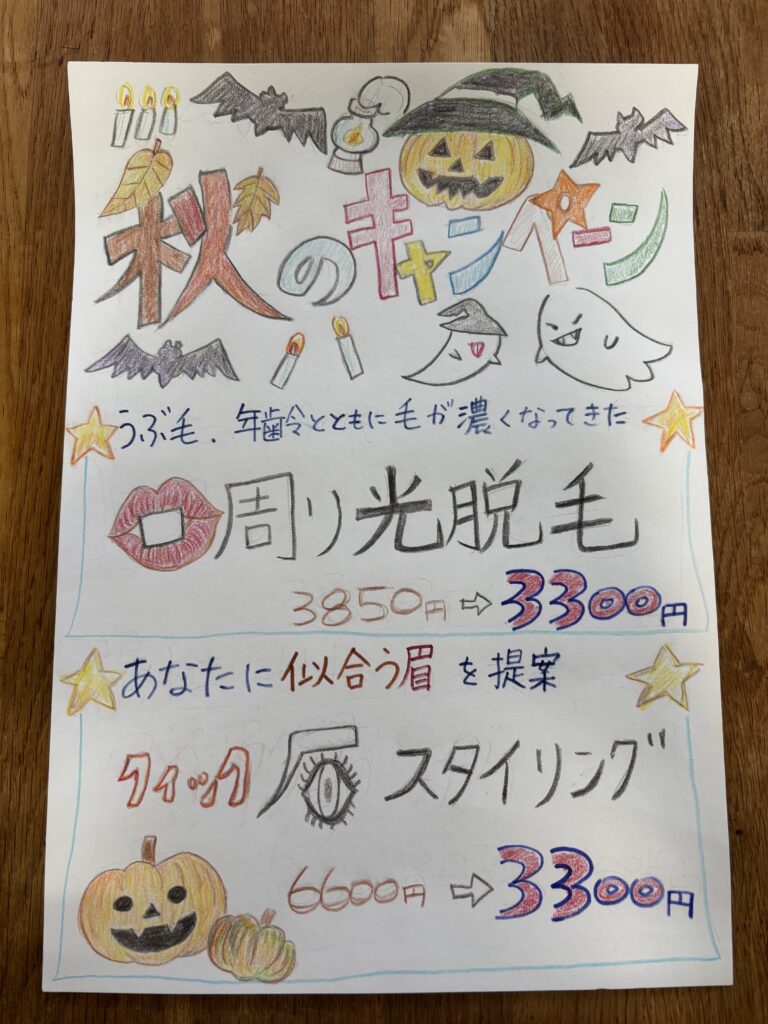 秋のキャンペーン
うぶ毛、年齢とともに毛が濃くなってきた
口周り光脱毛
3850円⇨3300円
あなたに似合う眉を提案
クイック眉スタイリング
6600円⇨3300円